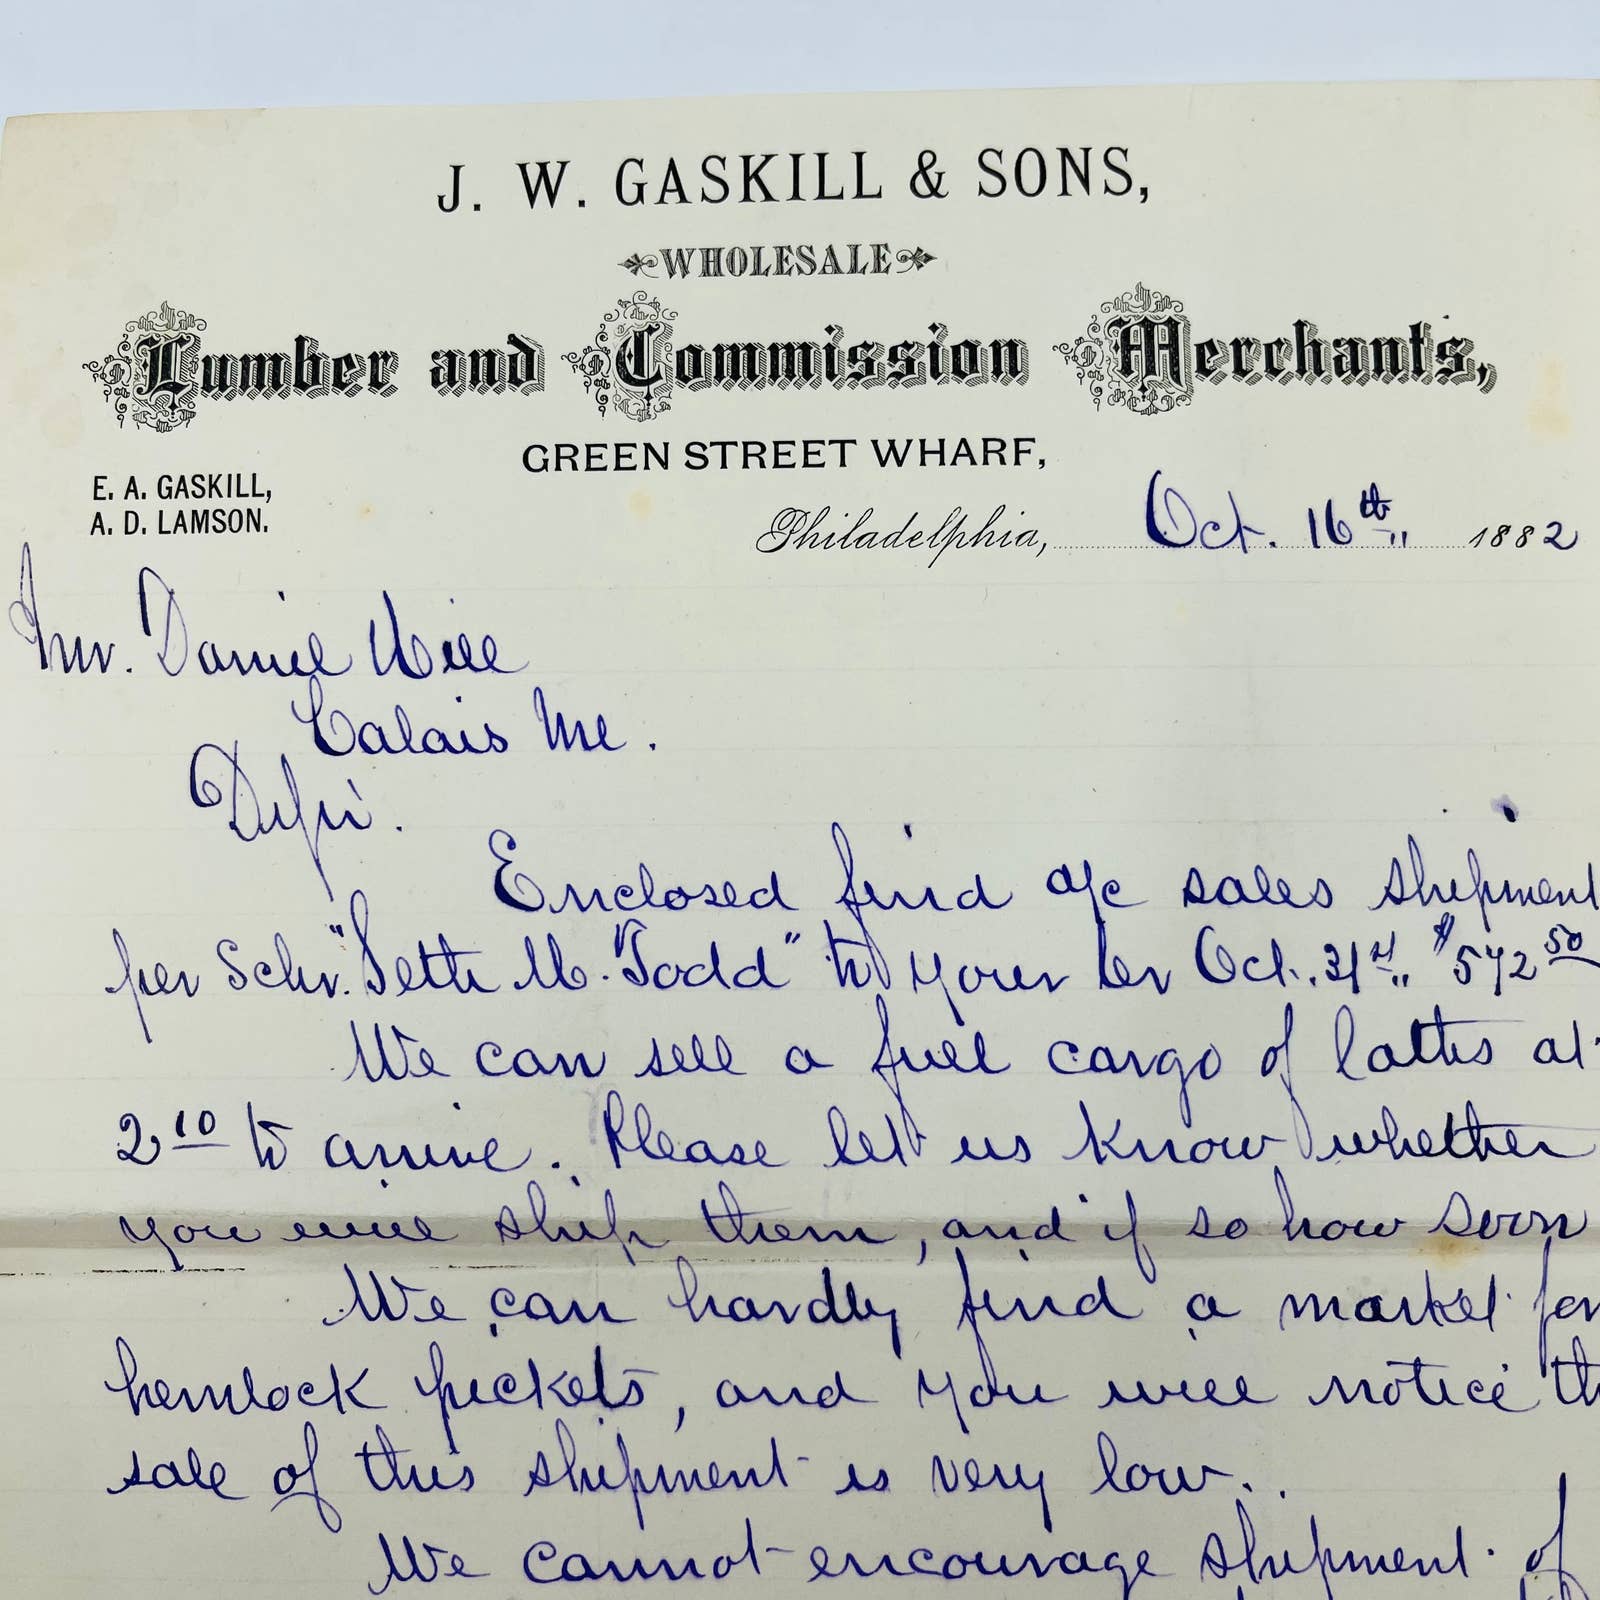 J. W. GASKILL & SONS,
WHOLESALE
Lumber and Commission Merchants,
GREEN STREET WHARF,
E. A. GASKILL,
A. D. LAMSON.
Philadelphia, Oct. 16th 1882
Mr. Daniel Hill
Calais Me.
D Sir.
Enclosed find a/c sales shipment
per Schr. "Seth M. Todd" to your Cr Oct. 31st $572 50
We can sell a full cargo of laths at
2 10 to arrive. Please let us know whether
you will ship them, and if so how soon
We can hardly find a market for
hemlock pickets, and you will notice th
sale of this shipment is very low.
We cannot encourage shipment of